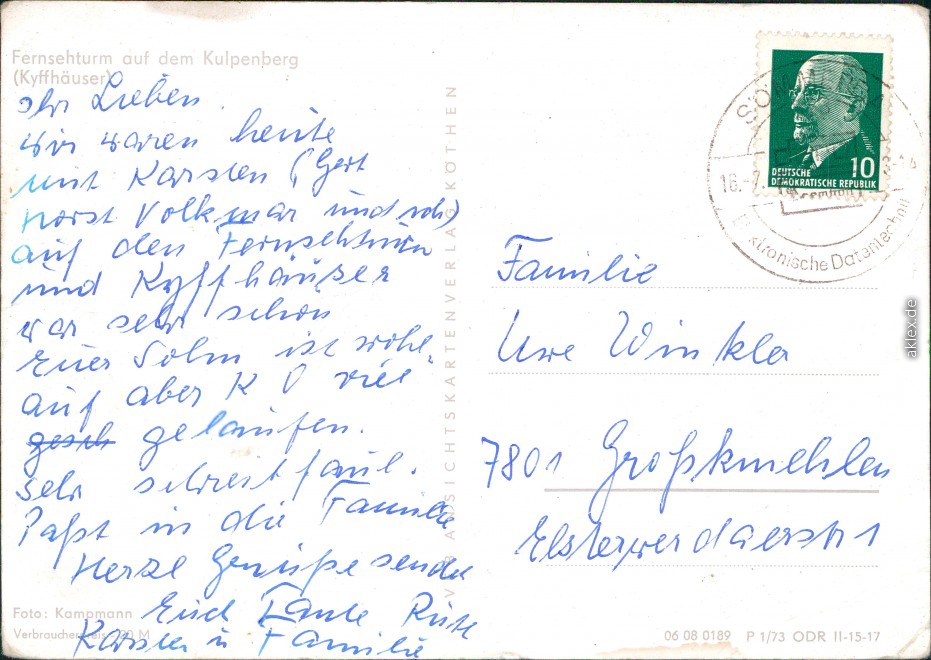 Fernsehturm auf dem Kulpenberg
(Kyffhäuser)
Ihr Lieben.
wir waren heute
mit Karsten (Gert
Horst Volkmar und ich)
auf den Fernsehturm
und Kyffhäuser
war sehr schön
Euer Sohn ist wohl-
auf aber K O viel
gesch gelaufen.
Sehr schreibfaul.
Paßt in die Familie
Herzl Grüße sendet
Euch Tante Rute
Karsten u Familie
Foto: Kampmann
Verbraucherpreis 20 M
VERLAG KÖTHEN
DEUTSCHE
DEMOKRATISCHE REPUBLIK
10
SÖMMERDA
16.-7.
Elektronische Datentechnik
Familie
Uwe Winkler
7801 Großkmehlen
Elsterwerdaerstr 1
06 08 0189 P 1/73 ODR II-15-17
aklex.de